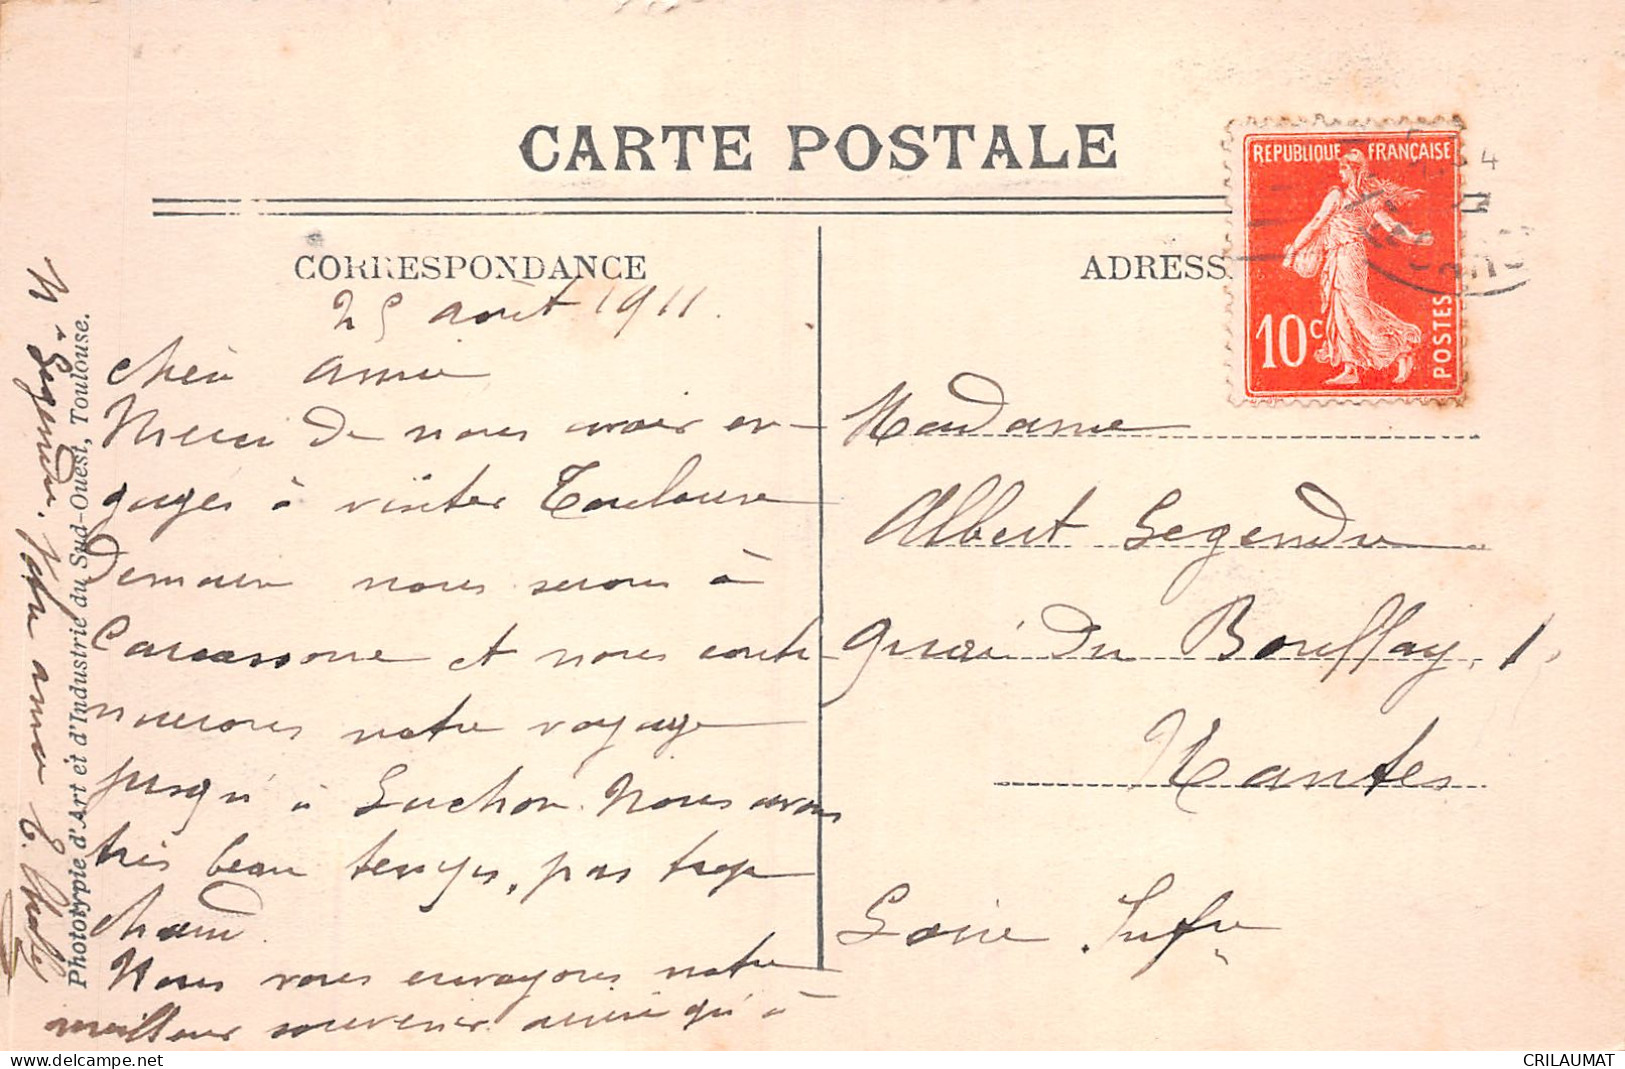 CARTE POSTALE
CORRESPONDANCE
ADRESS
REPUBLIQUE FRANÇAISE
10c
POSTES
25 août 1911.
chère amie
Merci de nous avoir en-
gagés à visiter Toulouse
Demain nous serons à
Carcassonne et nous conti
nuerons notre voyage
jusqu'à Luchon. Nous avons
très beau temps, pas trop
chaud.
Nous vous envoyons notre
meilleur souvenir ainsi qu'à
Mr Legendre. Votre amie E.
Madame
Albert Legendre
quai du Bouffay, 1,
Nantes
Loire Infre
Phototypie d'Art et d'Industrie du Sud-Ouest, Toulouse.
CRILAUMAT